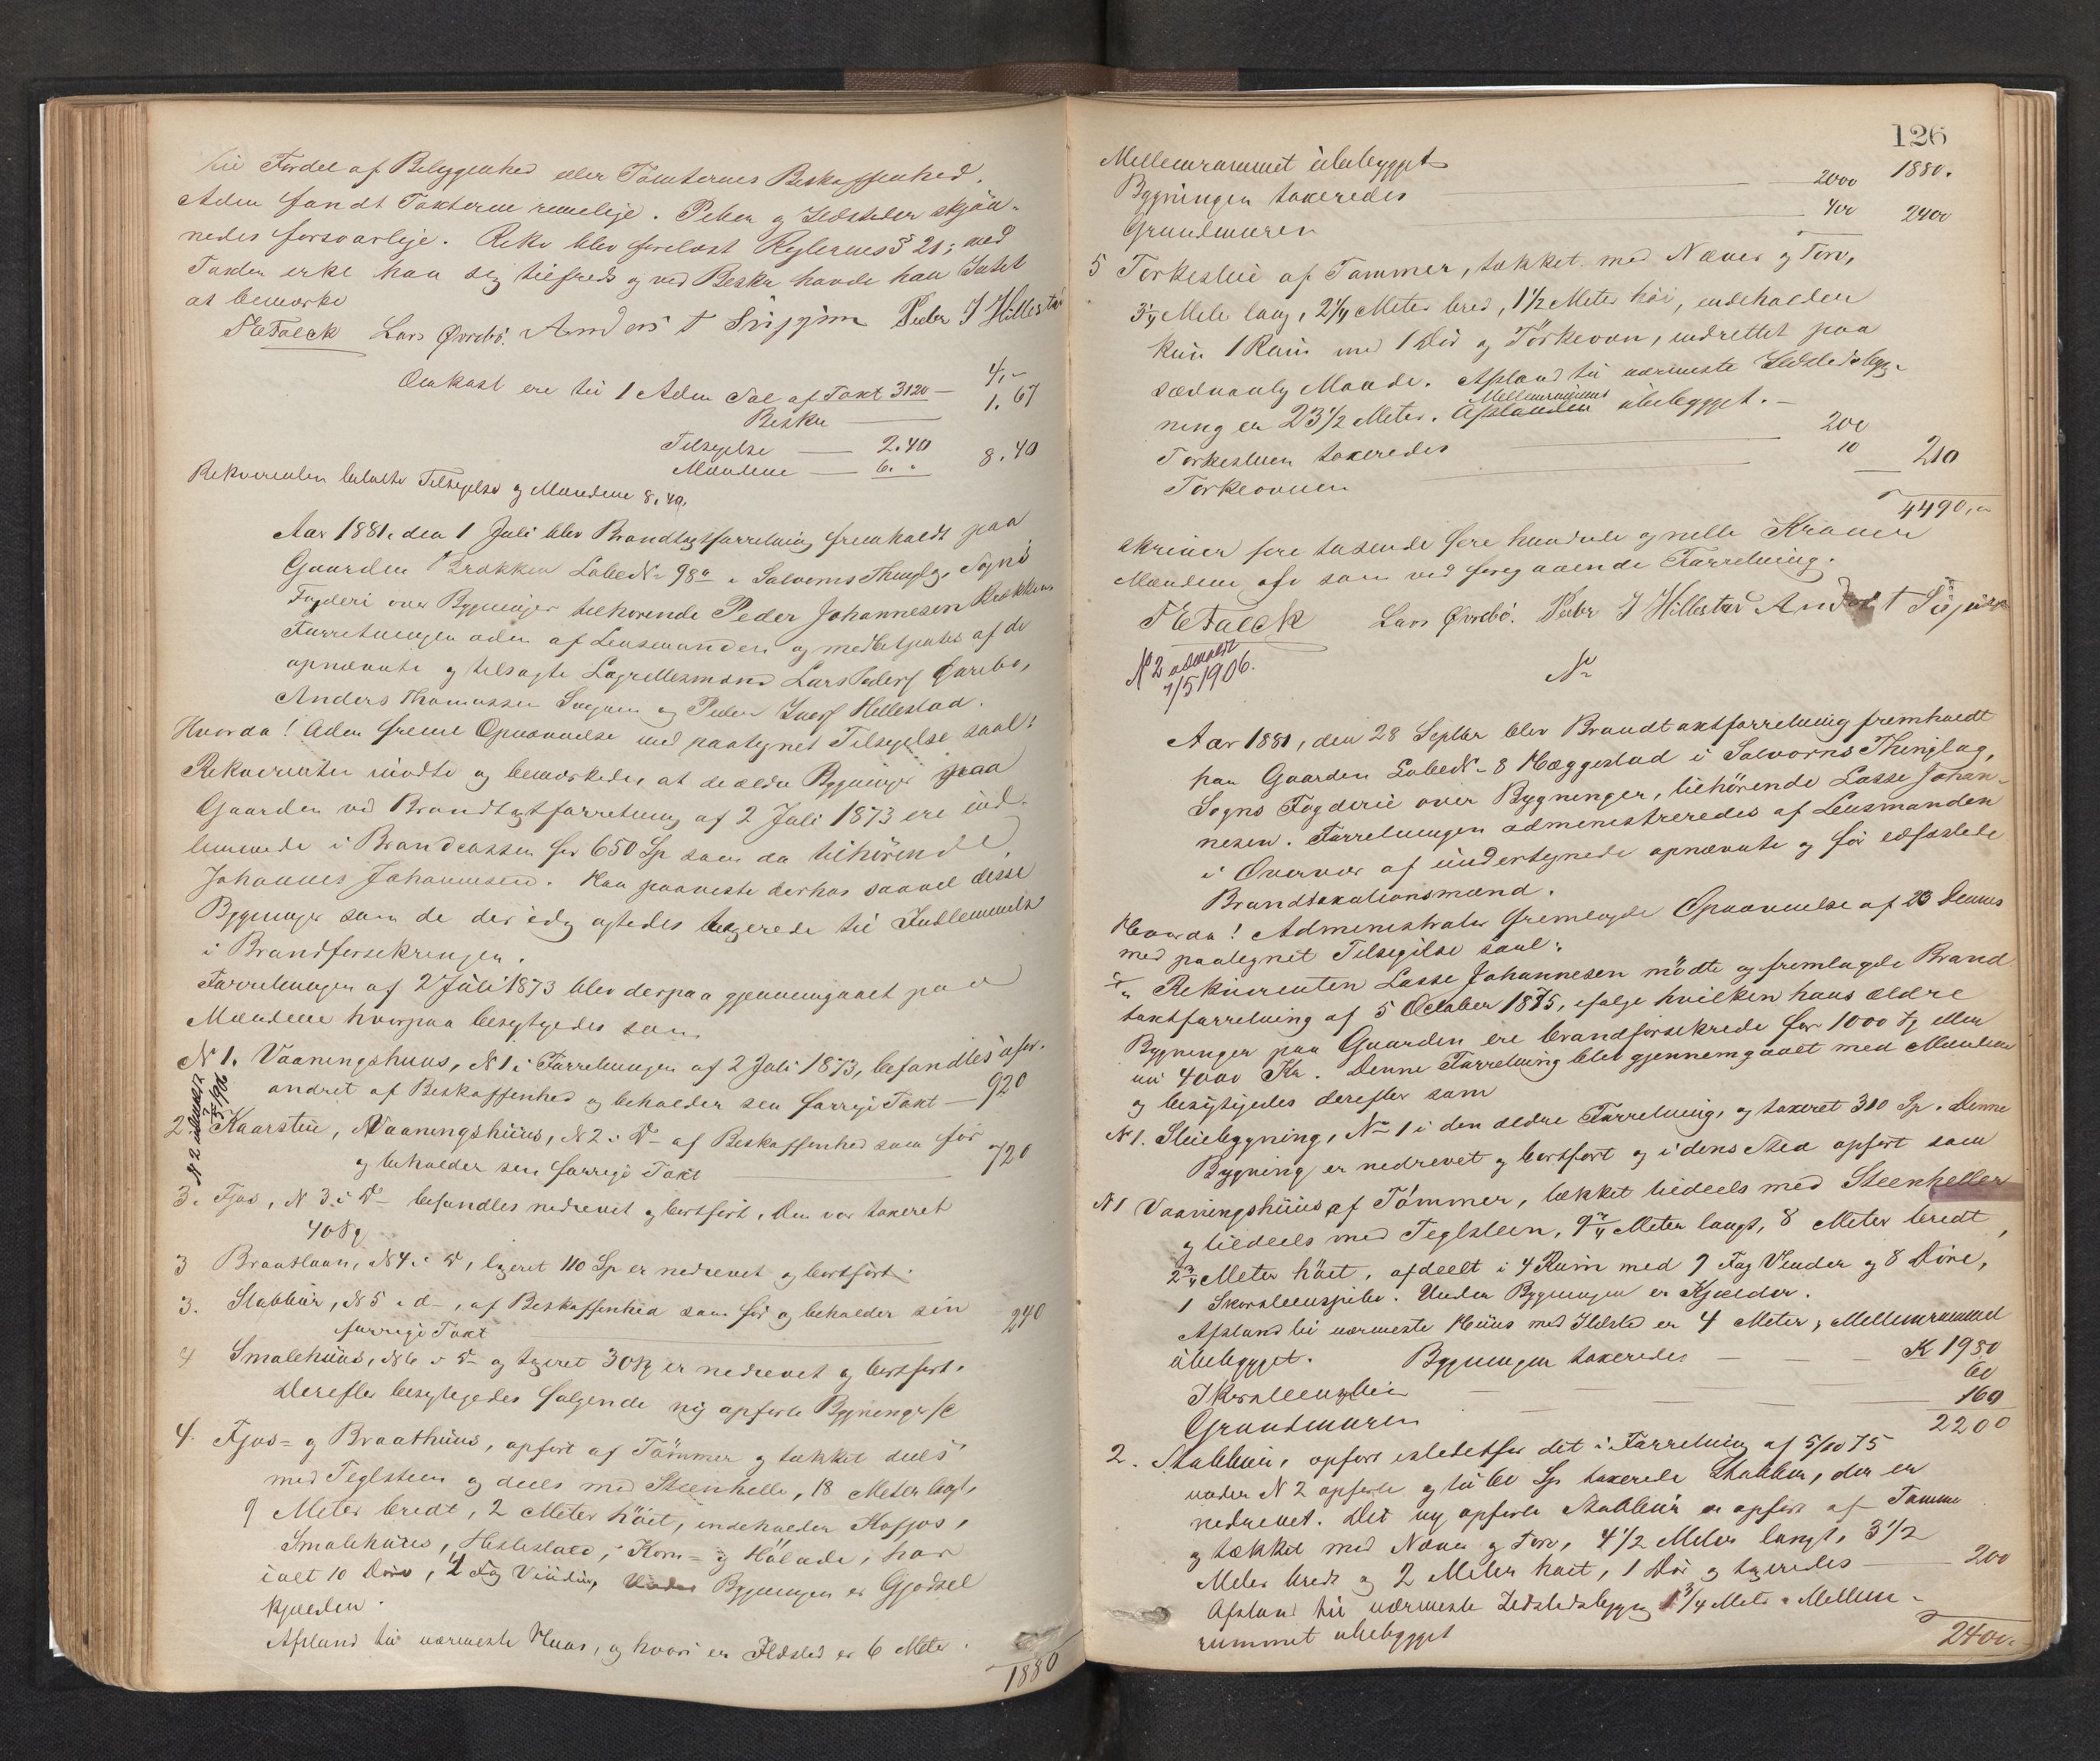 til Fordel af Beliggenhed eller Tomternes Beskaffenhed.
Adm fandt Taxterne rimelige. Peber og Ildsteder skjön-
nedes forsvarlige. Rekv blev forelæst Reglernes § 21; med
Taxten erkl han sig tilfreds og ved Beskr havde han Intet
at bemærke
Falck Lars Øvrebö. Anders T Peder I Hillestad
Omkost ere til 1 Adm Sal af Taxt 3120 — 4,-
Beskr — 1.67
Tilsigelse — 2.40
Mændene — 6. " 8.40
Rekvirenten betalte Tilsigelse og Mændene 8.40.
Aar 1881, den 1 Juli blev Brandtaxtforretning fremholdt paa
Gaarden Brækken LøbeN. 98a i Solvorns Thinglag, Sogns
Fogderi over Bygninger tilhørende Peder Johannesen Brækken
Forretningen adm af Lensmanden og medbetjentes af de
opnævnte og tilsagte Lagrettesmænd Lars Øvrebö,
Anders Thomassen og Peder Hillestad.
Hvorda! Adm fremL Opnævnelse med paategnet Tilsigelse saal:
Rekvirenten mødte og bemærkede, at de ældre Bygninger paa
Gaarden ved Brandtaxtforretning af 2 Juli 1873 ere ind-
lemmede i Brandcassen for 650 Sp som da tilhörende
Johannes Johannesen. Han paaviste derhos saavel disse
Bygninger som de der idag agtedes taxerede til Indlemmelse
i Brandforsikringen.
Forretningen af 2 Juli 1873 blev derpaa gjennemgaaet paa
Mændene hvorpaa besigtigedes som
N 1. Vaaningshuus, N 1 i Forretningen af 2 Juli 1873, befandtes ufor-
andret af Beskaffenhed og beholder sin forrige Taxt — 920
N 2 udmeldt 7/5 1906
2 Kaarstue, Vaaningshuus, N 2 i D— af Beskaffenhed som för
og beholder sin forrige Taxt 720
3. Fjös, N 3 i D— befandtes nedrevet og bortfört. Den var taxeret
40 Sp
3 Braatlaan, N 4 i D, taxeret 110 Sp er nedrevet og bortfört.
3. Stabbur, N 5 i d—, af Beskaffenhed som för og beholder sin
forrige Taxt 240
4 Smalehuus, N 6 i D— og taxeret 30 Sp er nedrevet og bortfört.
Derefter besigtigedes følgende ny opførte Bygninger
4. Fjøs- og Braathuus, opført af Tömmer og tækket deels
med Teglsteen og deels med Steenhelle, 18 Meter langt,
9 Meter bredt, 2 Meter höit, indeholder Kofjos,
Smalehuus, Hestestald, Korn- og Hölade, har
ialt 10 Döre, 4 Fag Vinduer, Under Bygningen er Gjødsel
kjælder.
Afstand til nærmeste Huus, og hvori er Ildsted er 6 Meter.
1880
126
1880.
Mellemrummet ubebygget
Bygningen taxeredes — 2000
Grundmuren — 400 2400
5 Torkestue af Tømmer, tækket med Næver og Torv,
3¼ Meter lang, 2¼ Meter bred, 1½ Meter höi, indeholder
kun 1 Rum med 1 Dör og Törkeovn, indrettet paa
sædvanlig Maade. Afstand til nærmeste Ildstedsbyg-
ning er 23½ Meter. Afstanden Mellemrummet ubebygget.
Torkestuen taxeredes 200
Torkeovnen 10 210
4490,"
skriver fire tusende fire hundrede og nitti Kroner
Mændene som ved foregaaende Forretning.
Falck Lars Øvrebö. Peder I Hillestad Anders T
N 2 udmeldt
7/5 1906.
N
Aar 1881, den 28 Septber blev Brandtaxtforretning fremholdt
paa Gaarden LøbeN. 8 Hæggestad i Solvorns Thinglag,
Sogns Fogderie over Bygninger, tilhörende Lasse Johan-
nesen. Forretningen administreredes af Lensmanden
i Overvær af undertegnede opnævnte og för edfæstede
Brandtaxationsmænd.
Hvorda! Administrator fremlagde Opnævnelse af 23 Dennes
med paategnet Tilsigelse saal:
Rekvirenten Lasse Johannesen mödte og fremlagde Brand
taxtforretning af 5 October 1875, ifølge hvilken hans ældre
Bygninger paa Gaarden ere brandforsikrede for 1000 Sp eller
nu 4000 Kr. Denne Forretning blev gjennemgaaet med Mændene
og besigtigedes derefter som
N 1. Stuebygning, No 1 i den ældre Forretning, og taxeret 310 Sp. Denne
Bygning er nedrevet og bortfört og i dens Sted opfört som
N 1 Vaaningshuus af Tömmer, tækket tildeels med Steenheller
og tildeels med Teglsteen, 9¾ Meter langt, 8 Meter bredt,
2¾ Meter höit, afdeelt i 4 Rum med 9 Fag Vinduer og 8 Döre,
1 Skorsteenspibe. Under Bygningen er Kjælder.
Afstand til nærmeste Huus med Ildsted er 4 Meter, Mellemrummet
ubebygget. Bygningen taxeredes — K 1980
Skorsteenspiben — 60
Grundmuren — 160
2200
2. Stabbur, opført istedetfor det i Forretning af 5/10 75
under N 2 opførte og til 60 Sp taxerede Stabbur, der er
nedrevet. Det ny opførte Stabbur er opfört af Tømmer
og tækket med Næver og Torv, 4½ Meter langt, 3½
Meter bredt og 2 Meter höit, 1 Dör og taxeredes — 200
Afstand til nærmeste Ildstedsbygg 1¾ Meter. Mellem-
rummet ubebygget
2400.